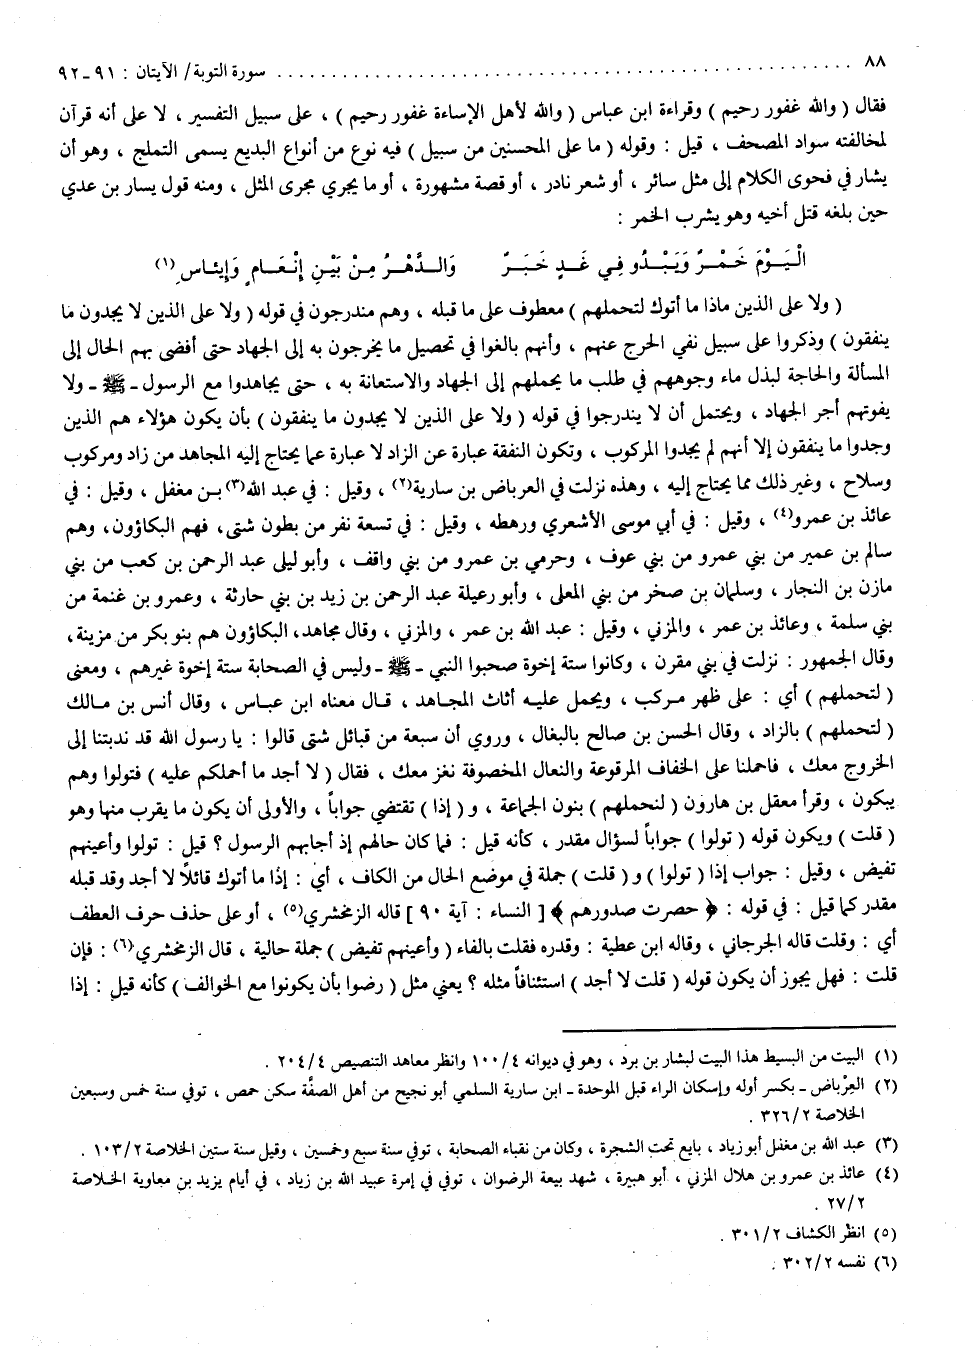 ٨٨ ........................................ سورة التوبة/ الآيتان : ٩١ ـ ٩٢
فقال ( والله غفور رحيم ) وقراءة ابن عباس ( والله لأهل الإساءة غفور رحيم ) ، على سبيل التفسير ، لا على أنه قرآن
لمخالفته سواد المصحف ، قيل : وقوله ( ما على المحسنين من سبيل ) فيه نوع من أنواع البديع يسمى التملح ، وهو أن
يشار في فحوى الكلام إلى مثل سائر ، أو شعر نادر ، أو قصة مشهورة ، أو ما يجري مجرى المثل ، ومنه قول يسار بن عدي
حين بلغه قتل أخيه وهو يشرب الخمر :
الْيَوْمَ خَمْرٌ وَيَبْدُو فِي غَدٍ خَبَرٌ وَالدَّهْرُ مِنْ بَيْنِ إِنْعَامٍ وَإِيئاسِ(١)
( ولا على الذين ماذا ما أتوك لتحملهم ) معطوف على ما قبله ، وهم مندرجون في قوله ( ولا على الذين لا يجدون ما
ينفقون ) وذكروا على سبيل نفي الحرج عنهم ، وأنهم بالغوا في تحصيل ما يخرجون به إلى الجهاد حتى أفضى بهم الحال إلى
المسألة والحاجة لبذل ماء وجوههم في طلب ما يحملهم إلى الجهاد والاستعانة به ، حتى يجاهدوا مع الرسول ـ ﷺ ـ ولا
يفوتهم أجر الجهاد ، ويحتمل أن لا يندرجوا في قوله ( ولا على الذين لا يجدون ما ينفقون ) بأن يكون هؤلاء هم الذين
وجدوا ما ينفقون إلا أنهم لم يجدوا المركوب ، وتكون النفقة عبارة عن الزاد لا عبارة عما يحتاج إليه المجاهد من زاد ومركوب
وسلاح ، وغير ذلك مما يحتاج إليه ، وهذه نزلت في العرباض بن سارية(٢) ، وقيل : في عبد الله(٣) بن مغفل ، وقيل : في
عائذ بن عمرو(٤) ، وقيل : في أبي موسى الأشعري ورهطه ، وقيل : في تسعة نفر من بطون شتى، فهم البكاؤون، وهم
سالم بن عمير من بني عمرو من بني عوف ، وحرمي بن عمرو من بني واقف ، وأبو ليلى عبد الرحمن بن كعب من بني
مازن بن النجار ، وسلمان بن صخر من بني المعلى ، وأبو رعيلة عبد الرحمن بن زيد بن بني حارثة ، وعمرو بن غنمة من
بني سلمة ، وعائذ بن عمر ، والمزني ، وقيل : عبد الله بن عمر ، والمزني ، وقال مجاهد، البكاؤون هم بنو بكر من مزينة،
وقال الجمهور : نزلت في بني مقرن ، وكانوا ستة إخوة صحبوا النبي ـ ﷺ ـ وليس في الصحابة ستة إخوة غيرهم ، ومعنى
( لتحملهم ) أي : على ظهر مركب ، ويحمل عليه أثاث المجاهد ، قال معناه ابن عباس ، وقال أنس بن مالك
( لتحملهم ) بالزاد ، وقال الحسن بن صالح بالبغال ، وروي أن سبعة من قبائل شتى قالوا : يا رسول الله قد ندبتنا إلى
الخروج معك ، فاحملنا على الخفاف المرقوعة والنعال المخصوفة نغز معك ، فقال ( لا أجد ما أحملكم عليه ) فتولوا وهم
يبكون ، وقرأ معقل بن هارون ( لنحملهم ) بنون الجماعة ، و ( إذا ) تقتضي جواباً ، والأولى أن يكون ما يقرب منها وهو
( قلت ) ويكون قوله ( تولوا ) جواباً لسؤال مقدر ، كأنه قيل : فما كان حالهم إذ أجابهم الرسول ؟ قيل : تولوا وأعينهم
تفيض ، وقيل : جواب إذا ( تولوا ) و ( قلت ) جملة في موضع الحال من الكاف ، أي : إذا ما أتوك قائلاً لا أجد وقد قبله
مقدر كما قيل : في قوله : ﴿ حصرت صدورهم ﴾ [ النساء : آية ٩٠ ] قاله الزمخشري(٥) ، أو على حذف حرف العطف
أي : وقلت قاله الجرجاني ، وقاله ابن عطية : وقدره فقلت بالفاء ( وأعينهم تفيض ) جملة حالية ، قال الزمخشري(٦) : فإن
قلت : فهل يجوز أن يكون قوله ( قلت لا أجد ) استئنافاً مثله ؟ يعني مثل ( رضوا بأن يكونوا مع الخوالف ) كأنه قيل : إذا
(١) البيت من البسيط هذا البيت لبشار بن برد ، وهو في ديوانه ١٠٠/٤ وانظر معاهد التنصيص ٢٠٤/٤ .
(٢) العِرْباض ـ بكسر أوله وإسكان الراء قبل الموحدة ـ ابن سارية السلمي أبو نجيح من أهل الصفَّة سكن حمص ، توفي سنة خمس وسبعين
الخلاصة ٣٢٦/٢ .
(٣) عبد الله بن مغفل أبو زياد ، بايع تحت الشجرة ، وكان من نقباء الصحابة ، توفي سنة سبع وخمسين ، وقيل سنة ستين الخلاصة ١٠٣/٢ .
(٤) عائذ بن عمرو بن هلال المزني ، أبو هبيرة ، شهد بيعة الرضوان ، توفي في إمرة عبيد الله بن زياد ، في أيام يزيد بن معاوية الخلاصة
٢٧/٢ .
(٥) انظر الكشاف ٣٠١/٢ .
(٦) نفسه ٣٠٢/٢ .